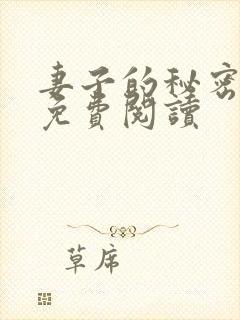 妻子的秘密
免費閱讀
草席